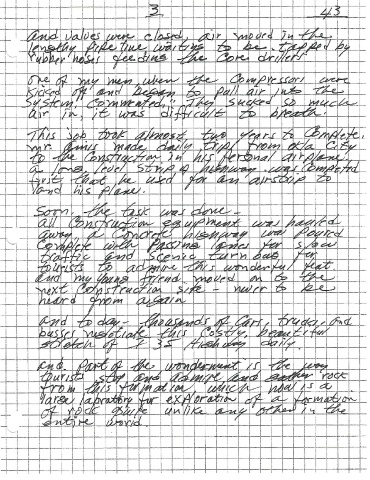 3 43
and valves were closed, air moved in the
lengthy pipe line waiting to be tapped by
rubber hoses feeding the core drillers
One of my men when the compressors were
kicked off and began to pull air into the
system commented, "They sucked so much
air in, it was difficult to breath.
This job took almost two years to complete.
mr amis made daily trips from okla City
to the construction in his personal airplane.
a long level strip of highway was completed
first that he used for an airstrip to
land his plane.
Soon, the task was done -
all construction equipment was hauled
away, a concrete highway was poured
complete with passing lanes for slow
traffic and scenic turn outs for
tourists to admire this wonderful feat
and my young friend moved on to the
next construction site - never to be
heard from again
and today - thousands of cars, trucks, and
busses negotiate this costly, beautiful
stretch of I 35 highway daily.
and part of the wonderment is the way
tourists stop and admire and gather rock
from this formation which now is a
large labratory for exploration of a formation
of rock quite unlike any other in the
entire world.